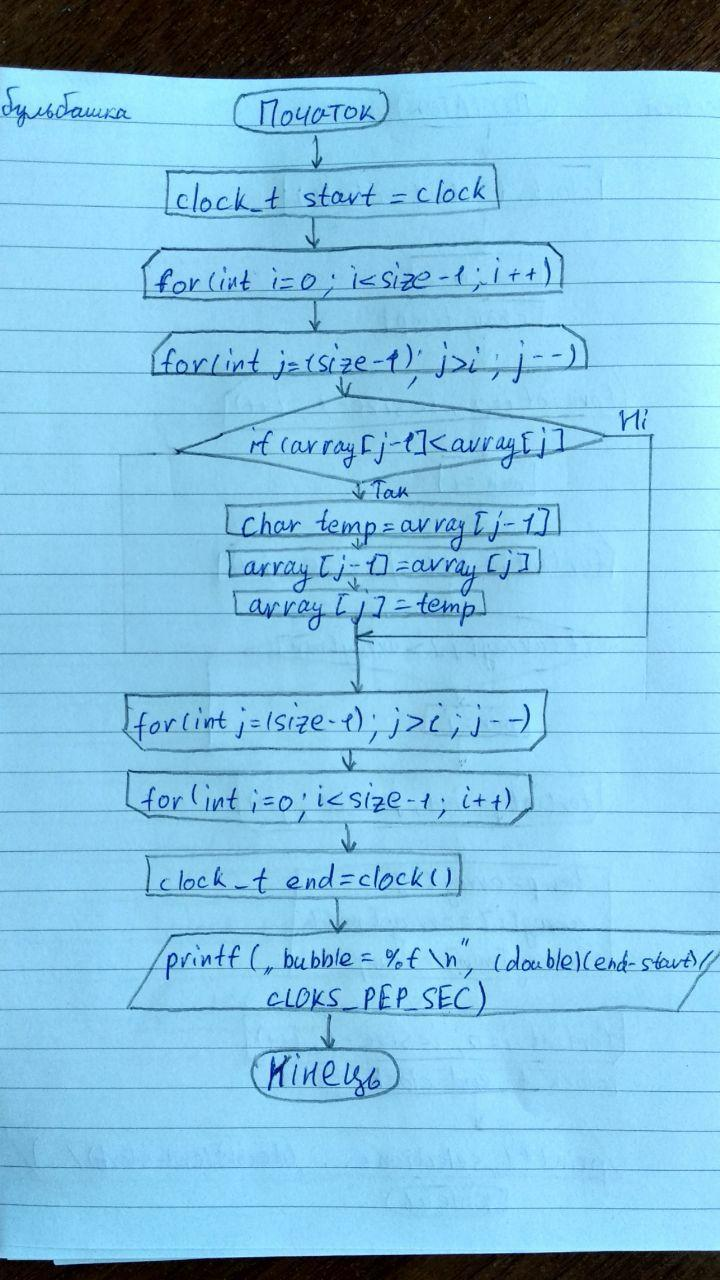 бульбашка
Початок
clock_t start = clock
for(int i=0; i<size-1; i++)
for(int j=(size-1); j>i; j--)
if(array[j-1]<array[j]
Ні
Так
Char temp=array[j-1]
array[j-1]=array[j]
array[j]=temp
for(int j=(size-1); j>i; j--)
for(int i=0; i<size-1; i++)
clock_t end=clock()
printf(„bubble = %f \n", (double)(end-start)/
CLOKS_PEP_SEC)
Кінець